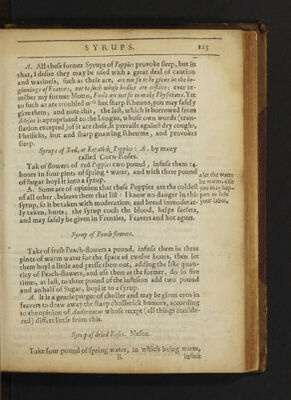 SYRUPS. 223
A. All these former Syrups of Poppies provoke sleep, but in
that, I desire they may be used with a great deal of caution
and wariness, such as these are, are not fit to be given in the be-
ginnings of Feavers, nor to such whose bodies are costive; ever re-
member my former Motto, Fools are not fit to make Physitians. Yet
to such as are troubled with hot sharp Rheums, you may safely
give them; and note this, the last, which is borrowed from
Mesue is apropriated to the Lungus, whose own words (tran-
slation excepted) of it are these, It prevails against dry coughs,
Phthisicks, hot and sharp gnawing Rheums, and provokes
sleep.
Syrups of Red, or Erratick, Poppies: A. by many
called Corn-Roses.
Tak of flowers of red Poppies two pound, infuse them 24
hours in four pints of spring * water, and with three pound
of Sugar boyl it into a syrup.
* let the water
be warm, else
you may hap-
pen to lose
your labor,
A. Some are of opinion that these Poppies are the coldest
of all other, beleeve them that list: I know no danger in this
syrup, so it be taken with moderation, and bread immoderat-
ly taken, hurts; the syrup cools the blood, helps surfets,
and may safely be given in Frensies, Feavers and hot agues.
Syrup of Peach-flowers.
Take of fresh Peach-flowers a pound, infuse them in three
pints of warm water for the space of twelve hours, then let
them boyl a little and presse them out, adding the like quan-
tity of Peach-flowers, and use them as the former, do so five
times, at last, to three pound of the infusion add two pound
and an half of Sugar, boyl it to a syrup.
A. It is a gentle purger of choller and may be given even in
feavers to draw away the sharp chollerick humors, according
to the opinion of Andernacus whose recept (all things conside-
red) differs little from this.
Syrup of dried Roses. Mesue.
Take four pound of spring water, in which being warm,
infuse